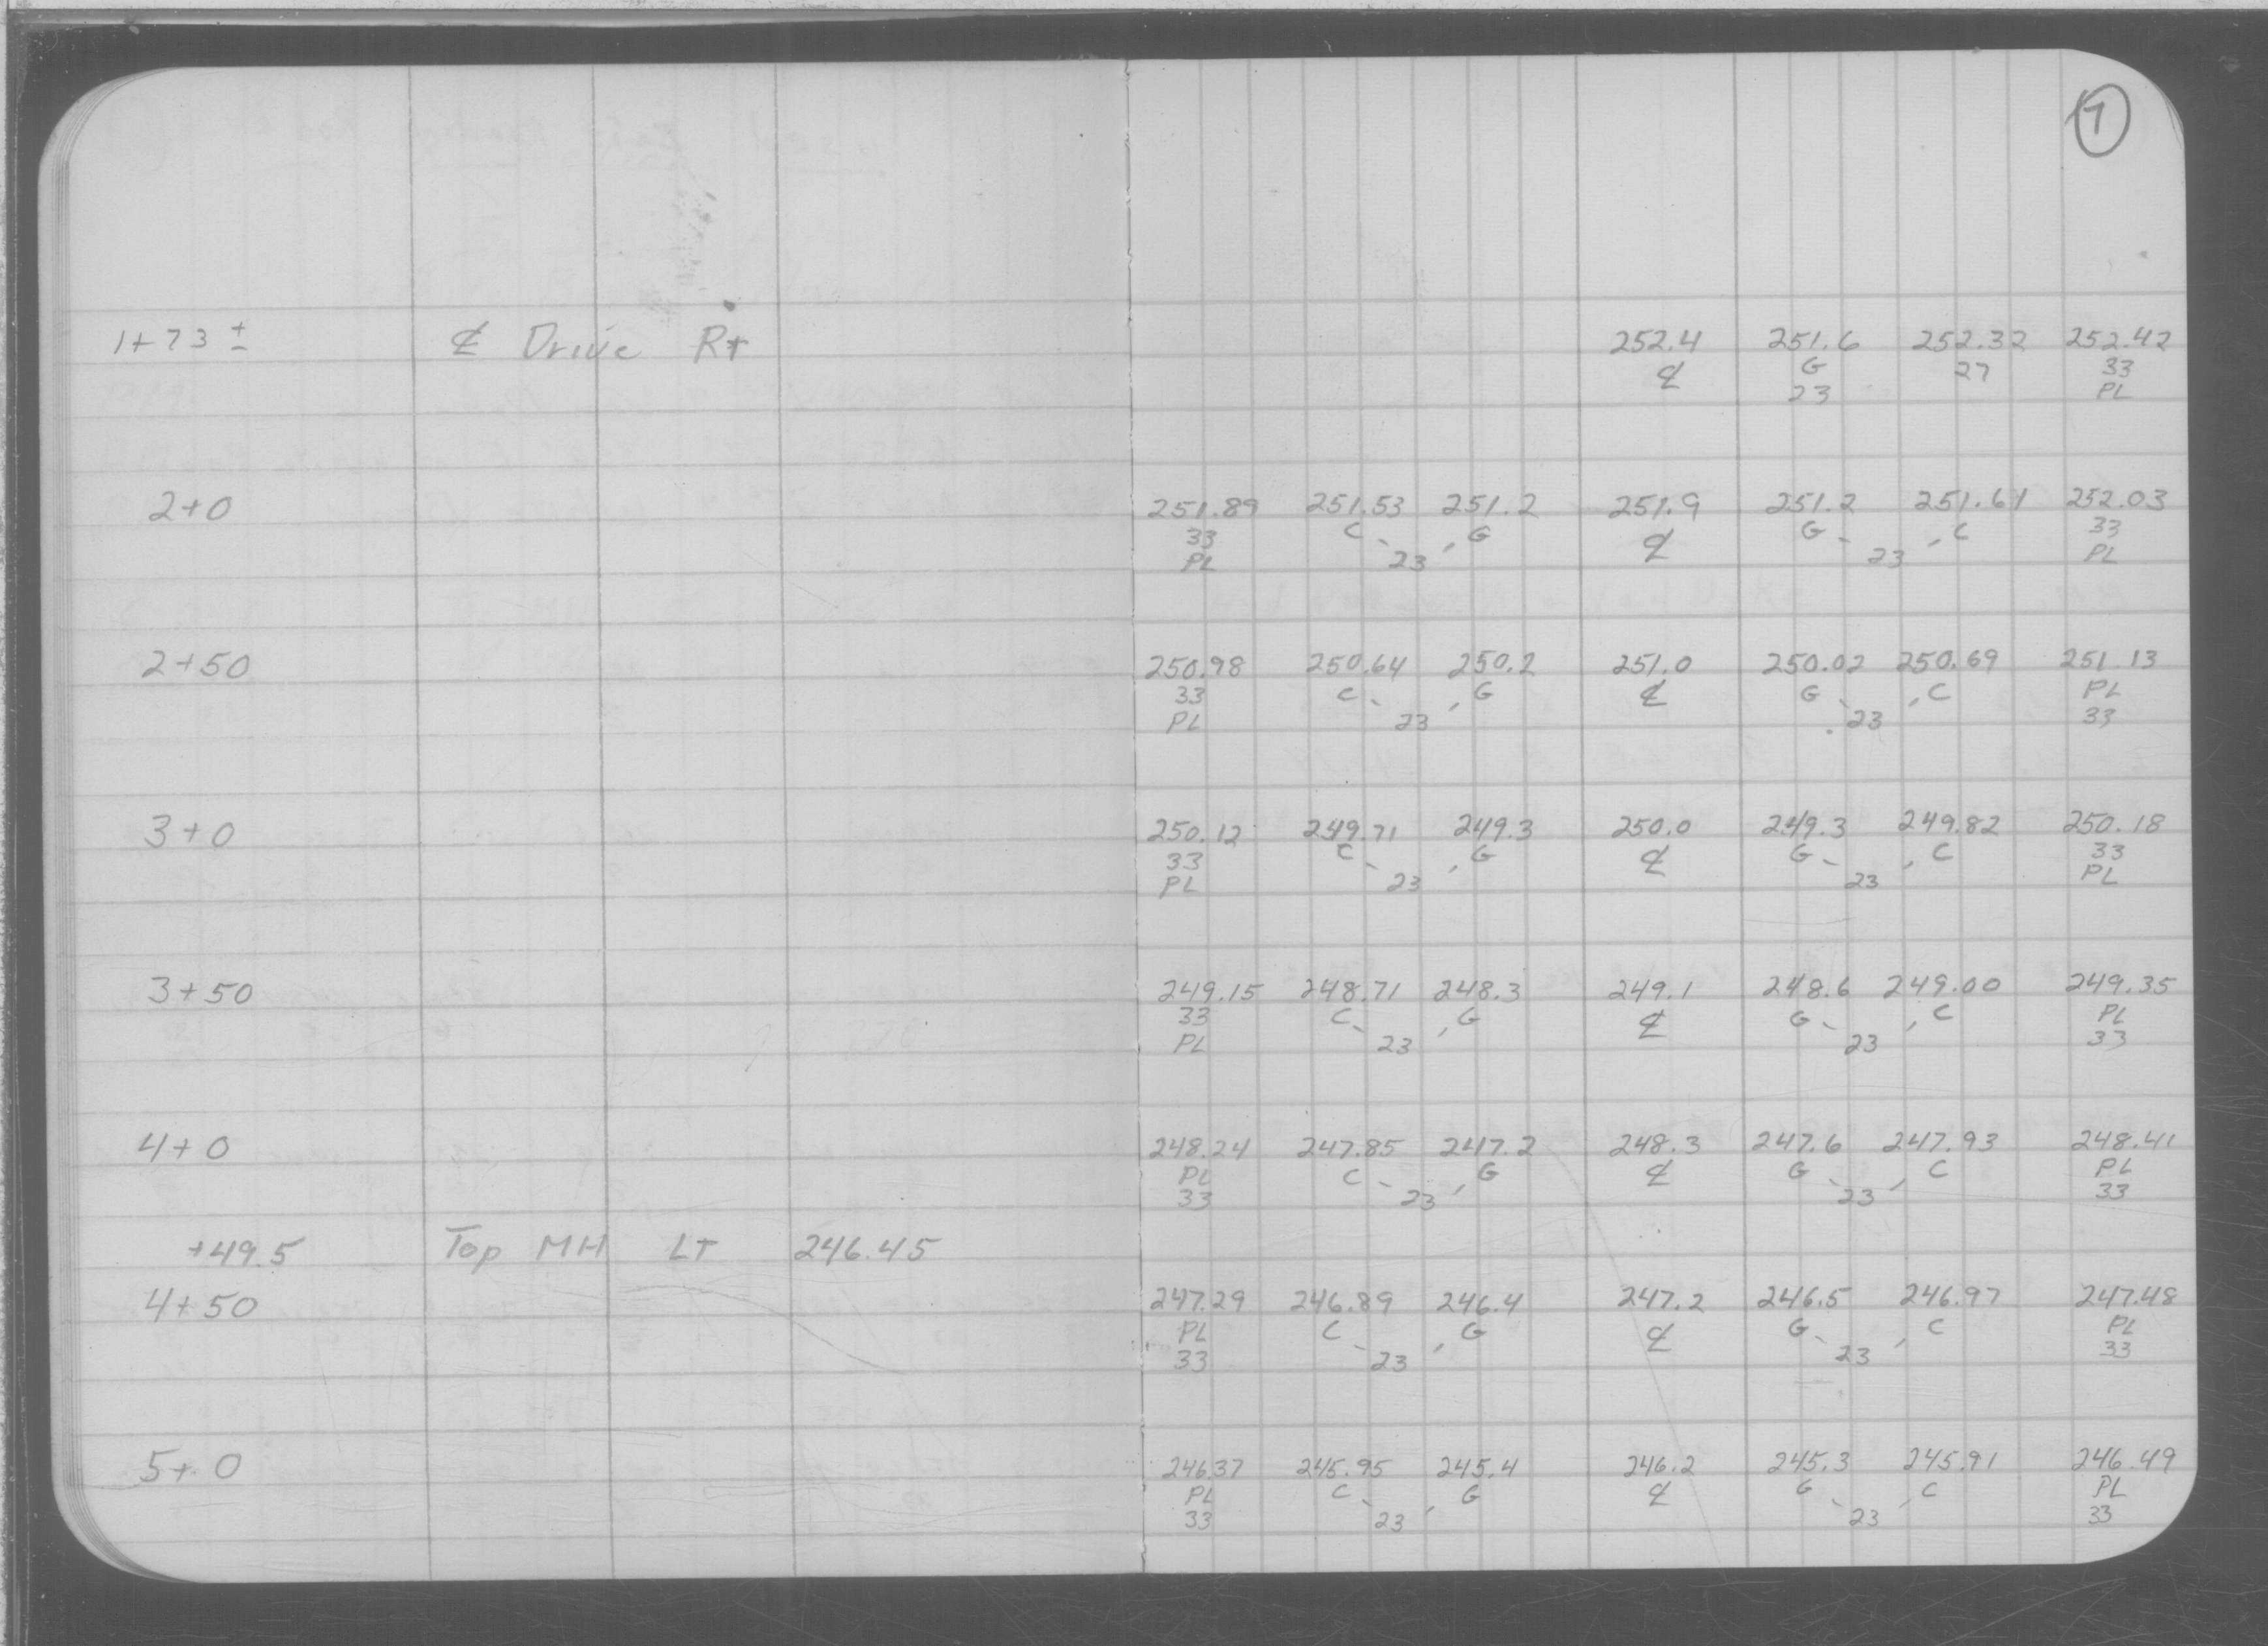 7
1+73 ± ℄ Drive Rt 252.4 251.6 252.32 252.42
℄ G 27 33
23 PL
2+0 251.89 251.53 251.2 251.9 251.2 251.61 252.03
33 C G ℄ G C 33
PL 23 23 PL
2+50 250.98 250.64 250.2 251.0 250.02 250.69 251.13
33 C G ℄ G C PL
PL 23 23 33
3+0 250.12 249.71 249.3 250.0 249.3 249.82 250.18
33 C G ℄ G C 33
PL 23 23 PL
3+50 249.15 248.71 248.3 249.1 248.6 249.00 249.35
33 C G ℄ G C PL
PL 23 23 33
4+0 248.24 247.85 247.2 248.3 247.6 247.93 248.41
PL C G ℄ G C PL
33 23 23 33
+49.5 Top MH LT 246.45
4+50 247.29 246.89 246.4 247.2 246.5 246.97 247.48
PL C G ℄ G C PL
33 23 23 33
5+0 246.37 245.95 245.4 246.2 245.3 245.91 246.49
PL C G ℄ G C PL
33 23 23 33